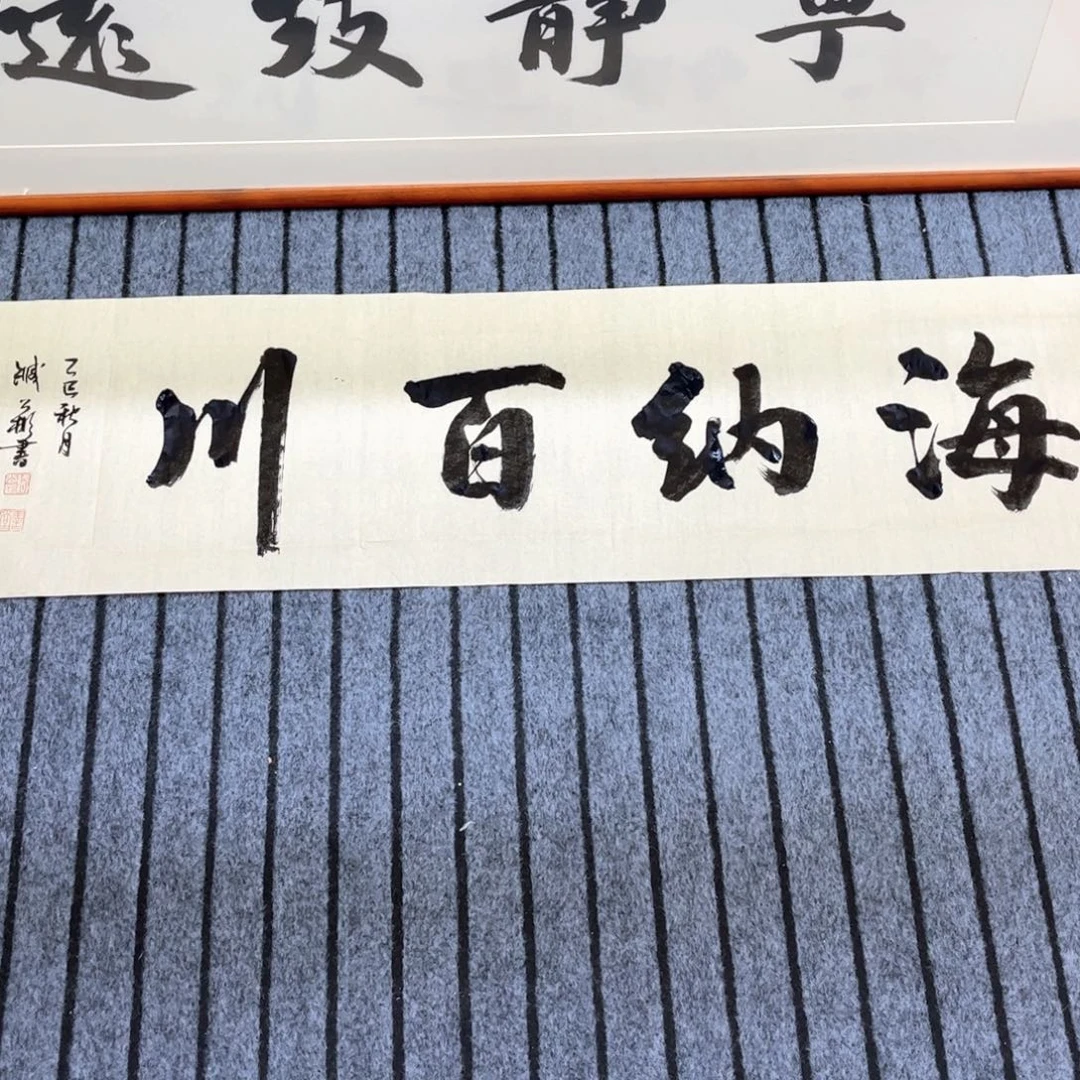 寧靜致遠
海納百川
乙巳秋月
書